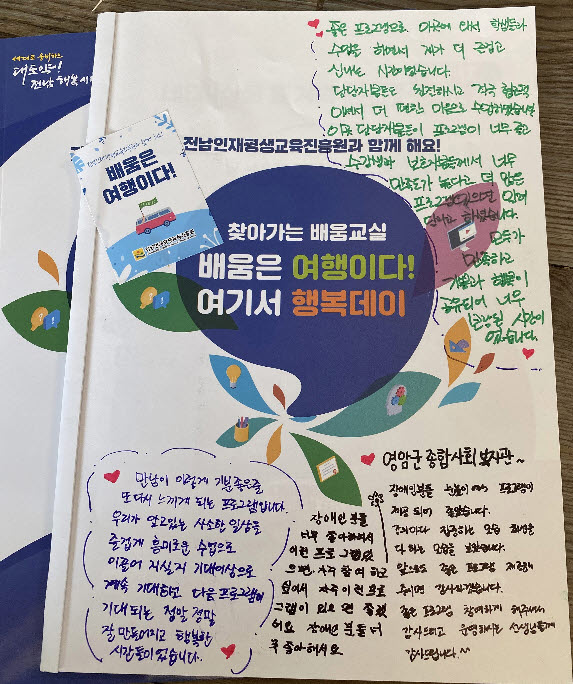 배움은
여행이다!
전남인재평생교육진흥원과 함께 해요!
찾아가는 배움교실
배움은 여행이다!
여기서 행복데이
좋은 프로그램으로 이곳에 와서 학생들과
수업을 하면서 제가 더 즐겁고
신나는 시간이었습니다.
담당자분들도 친절하시고 적극 협조적
이여서 더 편한 마음으로 수업하였습니다
담당자분들이 프로그램이 너무 좋고
수강생과 보호자분들께서 너무
만족도가 높다고 더 많은
모두가
만족하고
기쁨과 행복이
공유되어 너무
시간이
었습니다.
만남이 이렇게 기분좋은줄
또 다시 느끼게 되는 프로그램입니다.
우리가 알고있는 사소한 일상을
즐겁게 흥미로운 수업으로
이끌어 지실지 기대이상으로
계속 기대하고 다음 프로그램이
기대되는 정말 정말
잘 만들어지고 행복한
시간들이었습니다.
장애인 분들
너무 좋아하셔서
이런 프로그램있
으면, 자주 참여 하고
싶어서 자주 이런 프로
그램이 있으면 좋겠
어요 장애인 분들 너
무 좋아해서요
영암군 종합사회복지관~
장애인분들 눈높이에 프로그램이
제공 되어 좋았습니다.
강의마다 집중하는 모습 최선을
다 하는 모습을 보았습니다.
앞으로도 좋은 프로그램 제공해
주시면 감사하겠습니다.
좋은 프로그램 참여하게 해주셔서
감사드리고 운영하시는 선생님들께
감사드립니다.^^